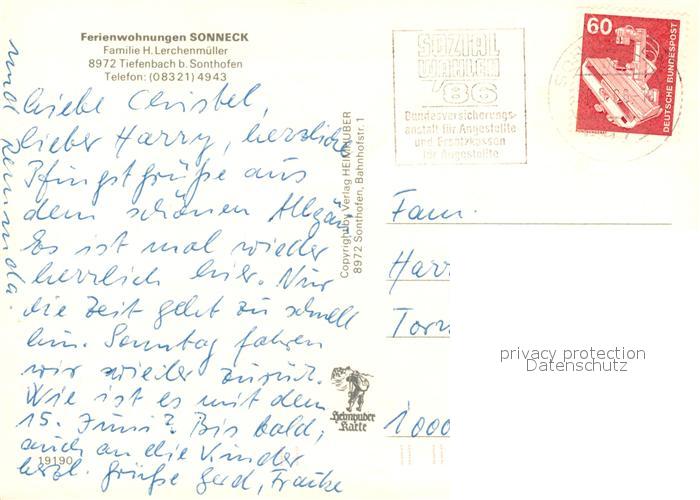 Ferienwohnungen SONNECK
Familie H. Lerchenmüller
8972 Tiefenbach b. Sonthofen
Telefon: (08321) 4943
Liebe Christel,
lieber Harry, herzliche
Pfingstgrüße aus
dem schönen Allgäu.
Es ist mal wieder
herrlich hier. Nur
die Zeit geht zu schnell
hin. Sonntag fahren
wir wieder zurück.
Wie ist es mit dem
15. Juni? Bis bald,
auch an die Kinder
herzl. Grüße Gerd, Frauke
und
19190
Copyright by Verlag HEIMHUBER
8972 Sonthofen, Bahnhofstr. 1
Heimhuber
Karte
SOZIAL
WAHLEN
'86
Bundesversicherungs-
anstalt für Angestellte
und Ersatzkassen
für Angestellte
60
DEUTSCHE BUNDESPOST
Fam.
Harr
Torn
1000
privacy protection
Datenschutz